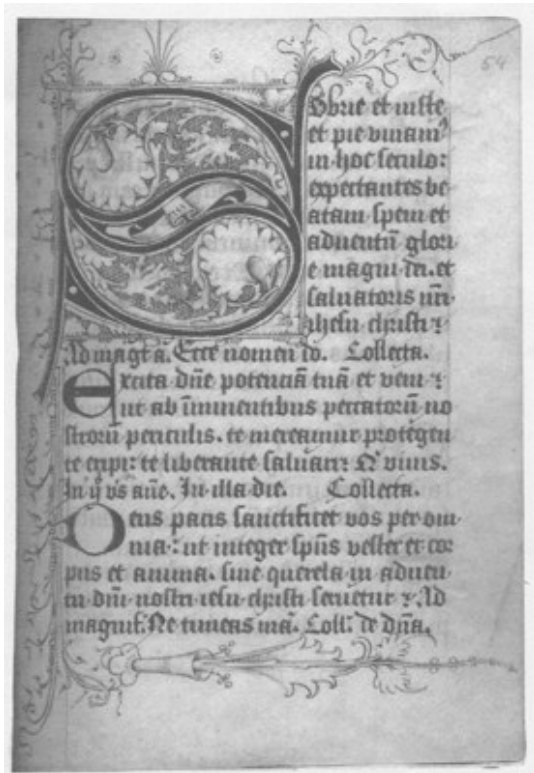 54
Sobrie et iuste
et pie viuamꝰ
in hoc seculo:
expectantes be
atam spem et
aduentū glori
e magni dei. et
saluatoris nr̄i
ihesu christi ⁊
Ad magt a. Ecce nomen do. Collecta.
Excita dn̄e potenciā tuā et veni ⁊
ut ab ūminentibus peccatorū no
strorū periculis. te mereamur protegen
te eripi: te liberante saluari: Q viuis.
In ij vs ane. In illa die. Collecta.
Deus pacis sanctificet vos per om
nia: ut integer spūs vester et cor
pus et anima. sine querela in aduen
tu dn̄i nostri iesu christi seruetur ⁊. Ad
magnif. Ne timeas ma. Coll. de dn̄a.